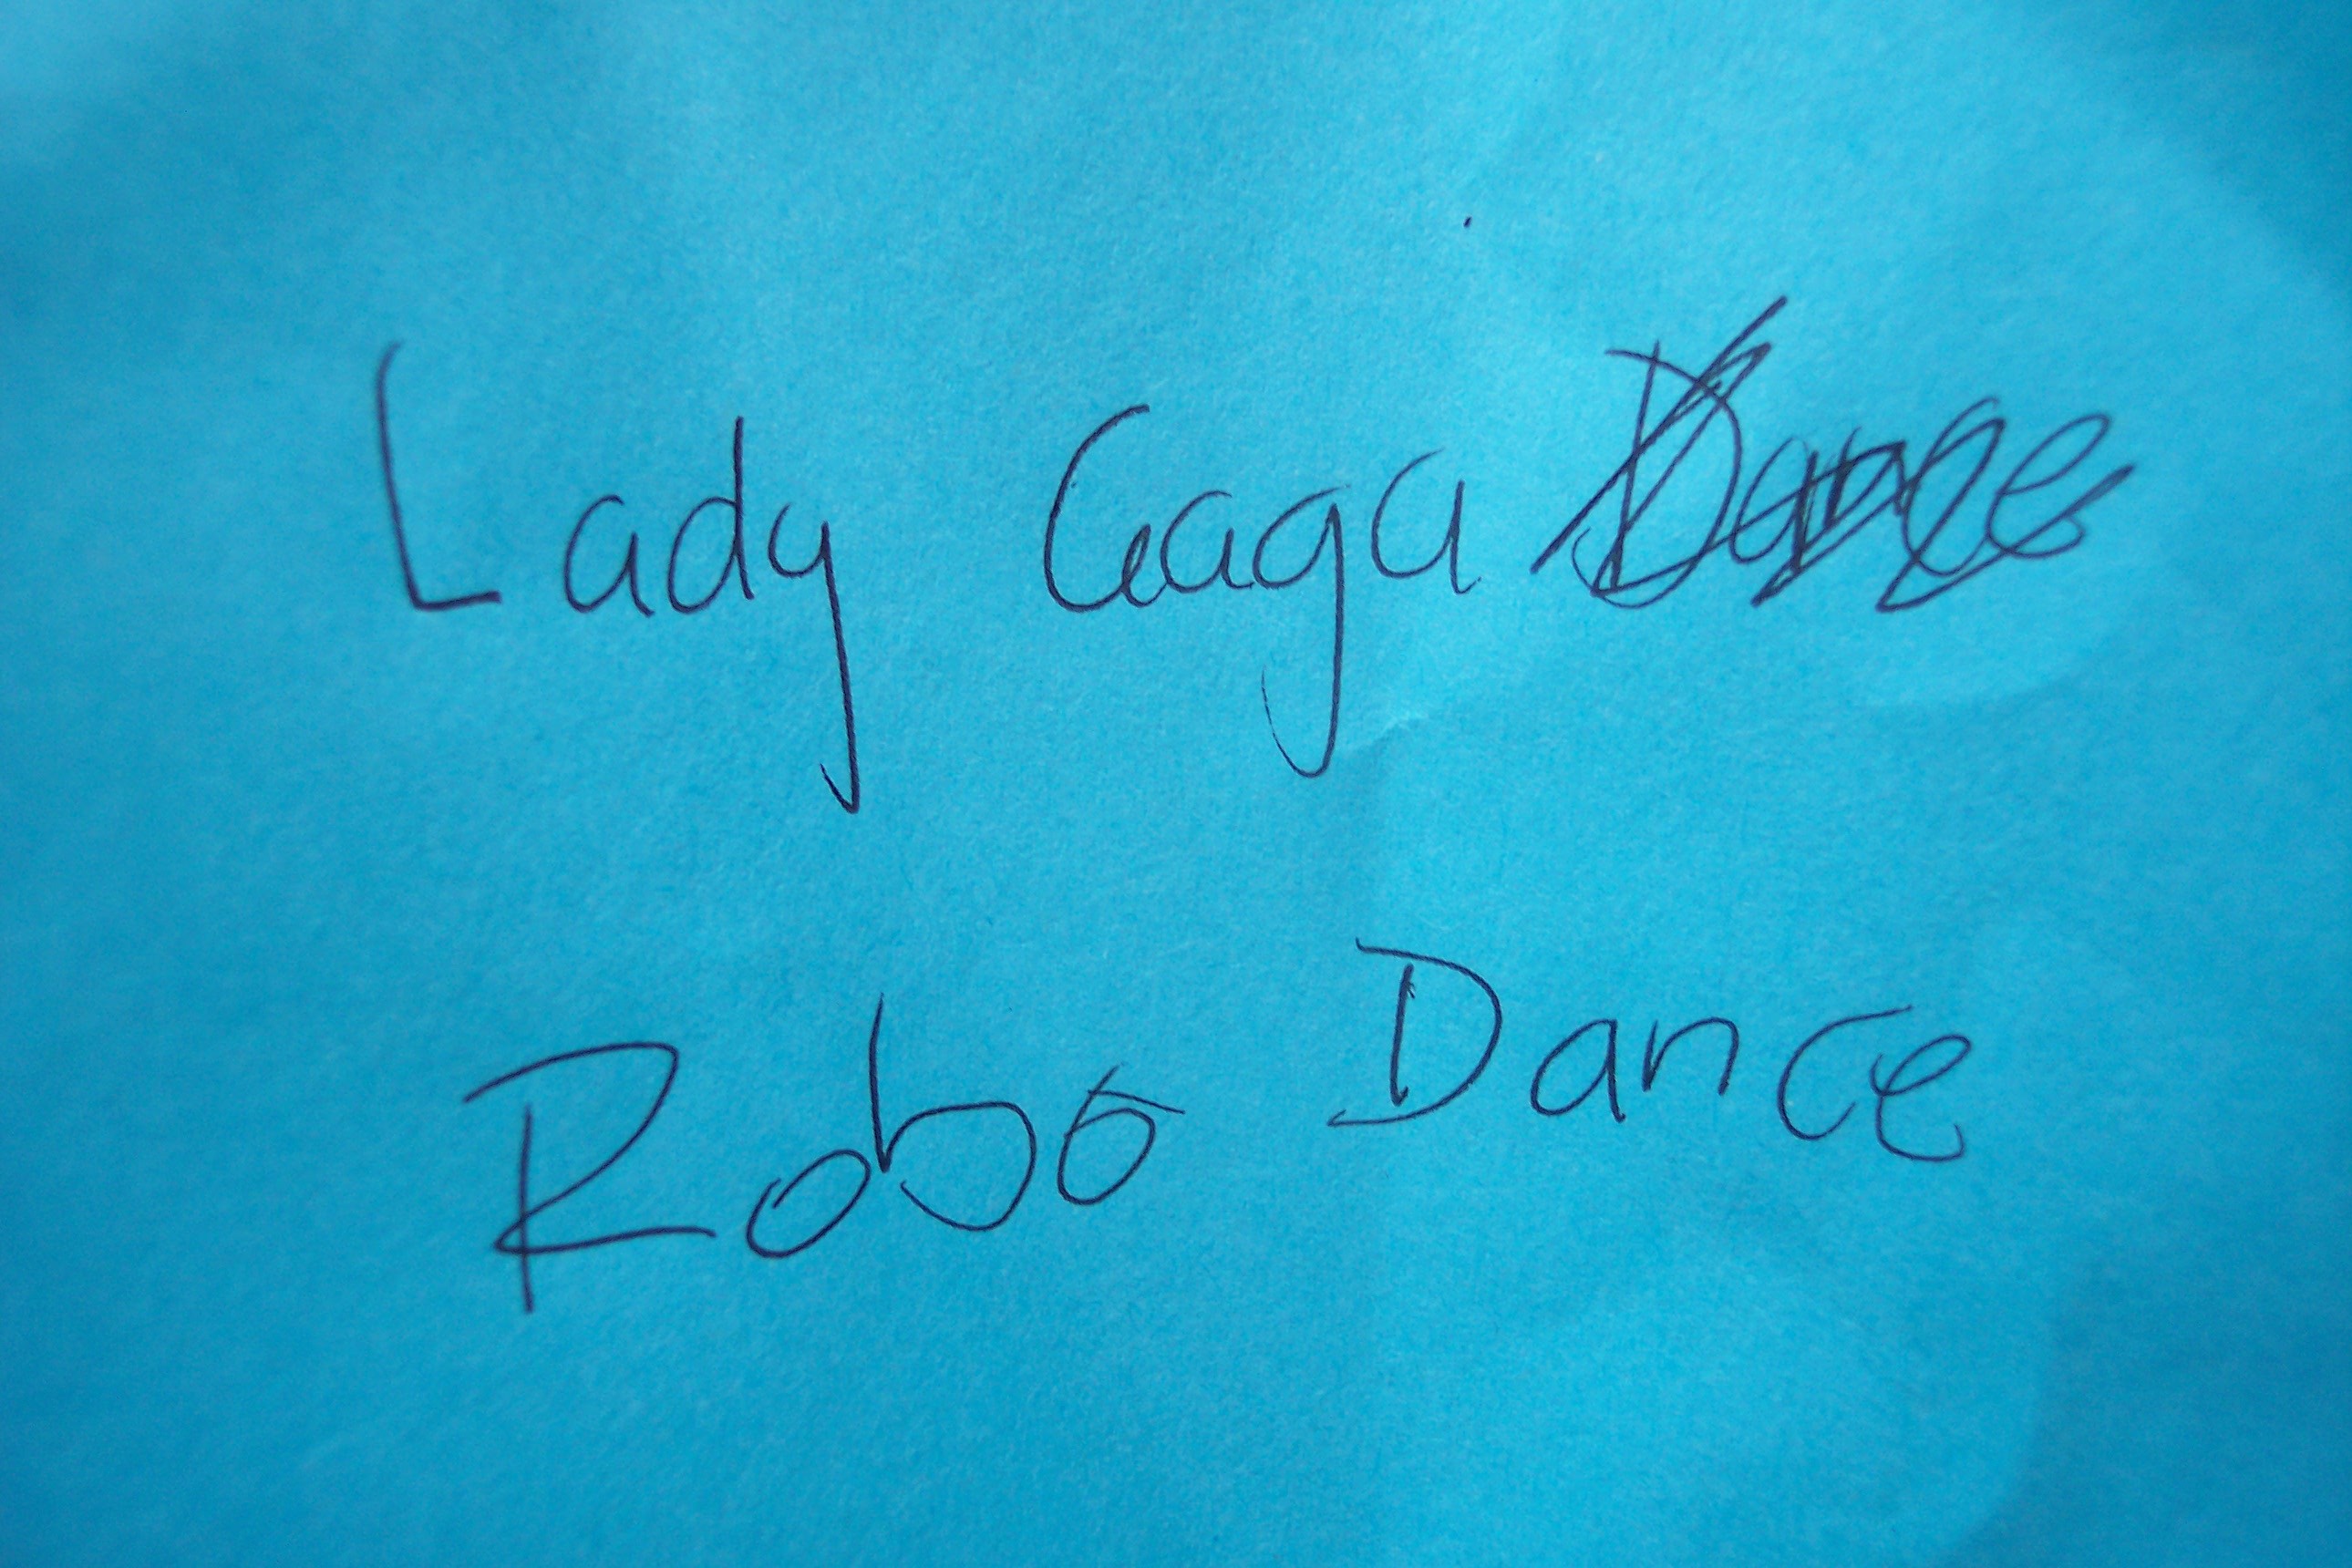 Lady Gaga Dance
Robo Dance